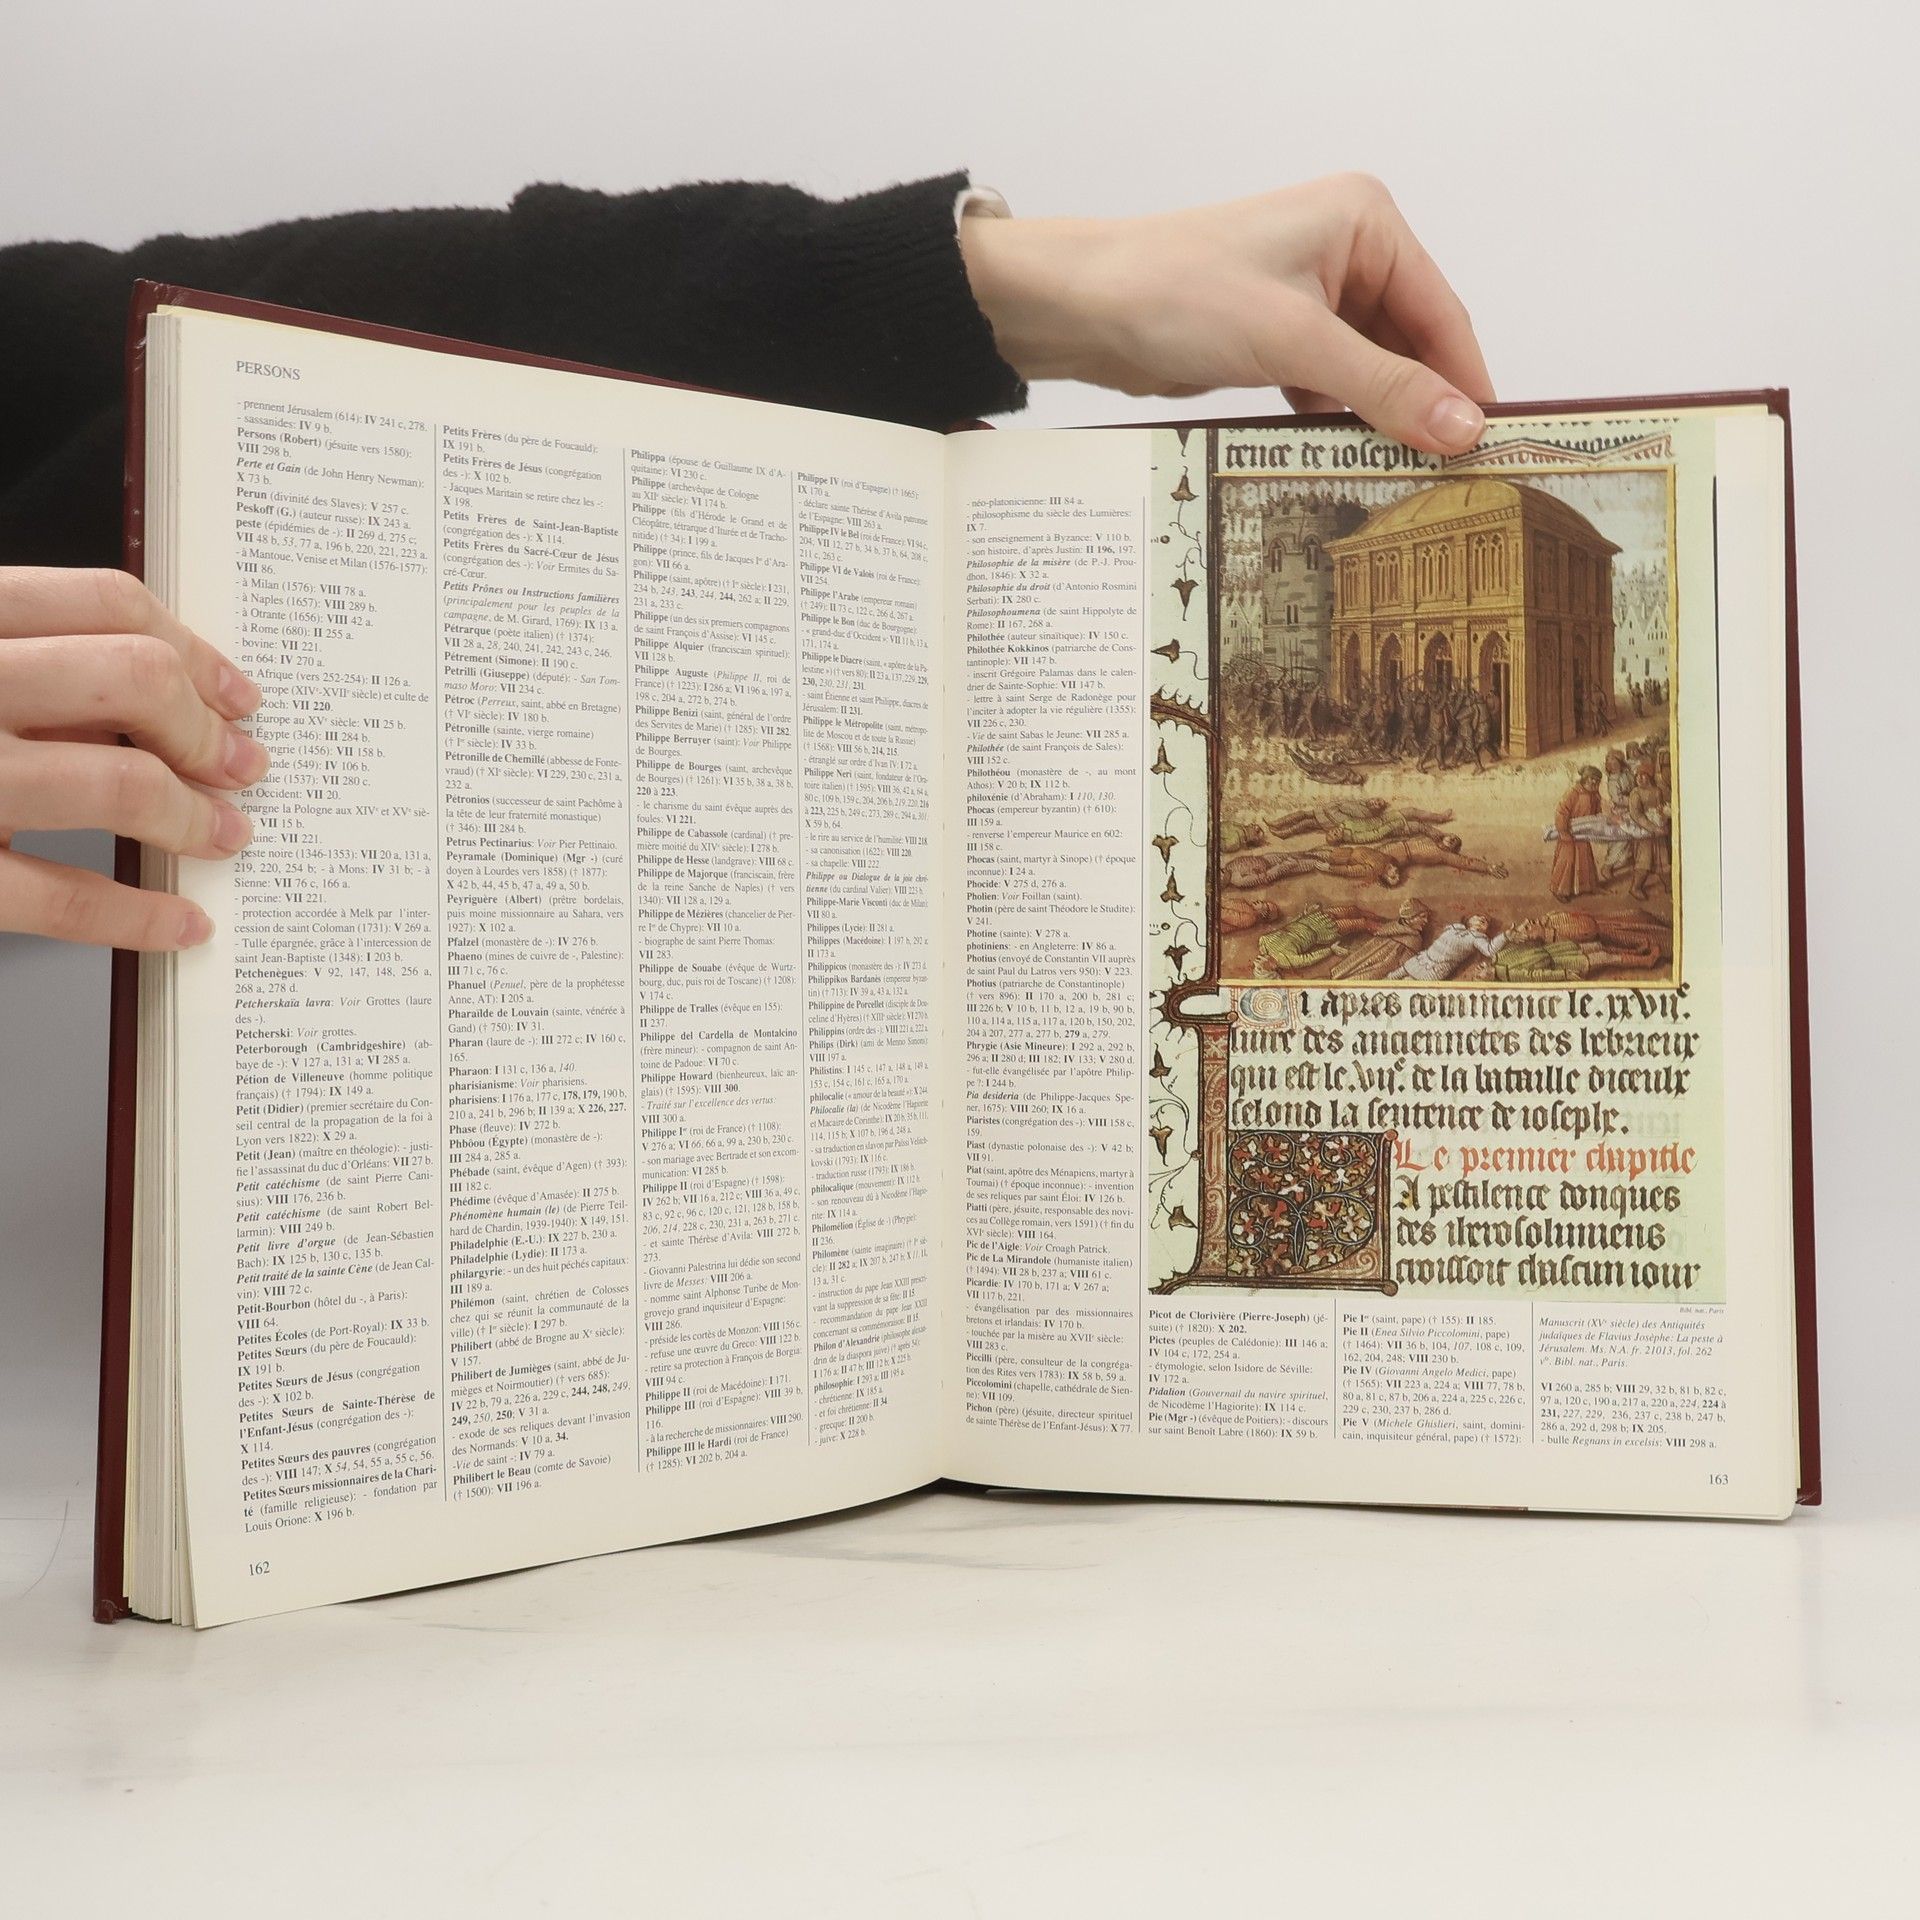 PERSONS
- prennent Jérusalem (614): IV 241 c, 278.
- sassanides: IV 9 b.
Persons (Robert) (jésuite vers 1580):
VIII 298 b.
Perte et Gain (de John Henry Newman):
X 73 b.
Perun (divinité des Slaves): V 257 c.
Peskoff (G.) (auteur russe): IX 243 a.
peste (épidémies de -): II 269 d, 275 c;
VII 48 b, 53, 77 a, 196 b, 220, 221, 223 a.
- à Mantoue, Venise et Milan (1576-1577):
VIII 86.
- à Milan (1576): VIII 78 a.
- à Naples (1657): VIII 289 b.
- à Otrante (1656): VIII 42 a.
- à Rome (680): II 255 a.
- bovine: VII 221.
- en 664: IV 270 a.
en Afrique (vers 252-254): II 126 a.
Europe (XIVe-XVIIe siècle) et culte de
Roch: VII 220.
en Europe au XVe siècle: VII 25 b.
Égypte (346): III 284 b.
ongrie (1456): VII 158 b.
ande (549): IV 106 b.
alie (1537): VII 280 c.
- en Occident: VII 20.
épargne la Pologne aux XIVe et XVe siè-
VII 15 b.
uine: VII 221.
peste noire (1346-1353): VII 20 a, 131 a,
219, 220, 254 b; - à Mons: IV 31 b; - à
Sienne: VII 76 c, 166 a.
- porcine: VII 221.
- protection accordée à Melk par l'inter-
cession de saint Coloman (1731): V 269 a.
- Tulle épargnée, grâce à l'intercession de
saint Jean-Baptiste (1348): I 203 b.
Petchenègues: V 92, 147, 148, 256 a,
268 a, 278 d.
Petcherskaïa lavra: Voir Grottes (laure
des -).
Petcherski: Voir grottes.
Peterborough (Cambridgeshire) (ab-
baye de -): V 127 a, 131 a; VI 285 a.
Pétion de Villeneuve (homme politique
français) († 1794): IX 149 a.
Petit (Didier) (premier secrétaire du Con-
seil central de la propagation de la foi à
Lyon vers 1822): X 29 a.
Petit (Jean) (maître en théologie): - justi-
fie l'assassinat du duc d'Orléans: VII 27 b.
Petit catéchisme (de saint Pierre Cani-
sius): VIII 176, 236 b.
Petit catéchisme (de saint Robert Bel-
larmin): VIII 249 b.
Petit livre d'orgue (de Jean-Sébastien
Bach): IX 125 b, 130 c, 135 b.
Petit traité de la sainte Cène (de Jean Cal-
vin): VIII 72 c.
Petit-Bourbon (hôtel du -, à Paris):
VIII 64.
Petites Écoles (de Port-Royal): IX 33 b.
Petites Sœurs (du père de Foucauld):
IX 191 b.
Petites Sœurs de Jésus (congrégation
des -): X 102 b.
Petites Sœurs de Sainte-Thérèse de
l'Enfant-Jésus (congrégation des -):
X 114.
Petites Sœurs des pauvres (congrégation
des -): VIII 147; X 54, 54, 55 a, 55 c, 56.
Petites Sœurs missionnaires de la Chari-
té (famille religieuse): - fondation par
Louis Orione: X 196 b.
Petits Frères (du père de Foucauld):
IX 191 b.
Petits Frères de Jésus (congrégation
des -): X 102 b.
- Jacques Maritain se retire chez les -:
X 198.
Petits Frères de Saint-Jean-Baptiste
(congrégation des -): X 114.
Petits Frères du Sacré-Cœur de Jésus
(congrégation des -): Voir Ermites du Sa-
cré-Cœur.
Petits Prônes ou Instructions familières
(principalement pour les peuples de la
campagne, de M. Girard, 1769): IX 13 a.
Pétrarque (poète italien) († 1374):
VII 28 a, 28, 240, 241, 242, 243 c, 246.
Pétrement (Simone): II 190 c.
Petrilli (Giuseppe) (député): - San Tom-
maso Moro: VII 234 c.
Pétroc (Perreux, saint, abbé en Bretagne)
(† VIe siècle): IV 180 b.
Pétronille (sainte, vierge romaine)
(† Ier siècle): IV 33 b.
Pétronille de Chemillé (abbesse de Fonte-
vraud) († XIe siècle): VI 229, 230 c, 231 a,
232 a.
Pétronios (successeur de saint Pachôme à
la tête de leur fraternité monastique)
(† 346): III 284 b.
Petrus Pectinarius: Voir Pier Pettinaio.
Peyramale (Dominique) (Mgr -) (curé
doyen à Lourdes vers 1858) († 1877):
X 42 b, 44, 45 b, 47 a, 49 a, 50 b.
Peyriguère (Albert) (prêtre bordelais,
puis moine missionnaire au Sahara, vers
1927): X 102 a.
Pfalzel (monastère de -): IV 276 b.
Phaeno (mines de cuivre de -, Palestine):
III 71 c, 76 c.
Phanuel (Penuel, père de la prophétesse
Anne, AT): I 205 a.
Pharaïlde de Louvain (sainte, vénérée à
Gand) († 750): IV 31.
Pharan (laure de -): III 272 c; IV 160 c,
165.
Pharaon: I 131 c, 136 a, 140.
pharisianisme: Voir pharisiens.
pharisiens: I 176 a, 177 c, 178, 179, 190 b,
210 a, 241 b, 296 b; II 139 a; X 226, 227.
Phase (fleuve): IV 272 b.
Phbôou (Égypte) (monastère de -):
III 284 a, 285 a.
Phébade (saint, évêque d'Agen) († 393):
III 182 c.
Phédime (évêque d'Amasée): II 275 b.
Phénomène humain (le) (de Pierre Teil-
hard de Chardin, 1939-1940): X 149, 151.
Philadelphia (E.-U.): IX 227 b, 230 a.
Philadelphie (Lydie): II 173 a.
philargyrie: - un des huit péchés capitaux:
III 189 a.
Philémon (saint, chrétien de Colosses
chez qui se réunit la communauté de la
ville) († Ier siècle): I 297 b.
Philibert (abbé de Brogne au Xe siècle):
V 157.
Philibert de Jumièges (saint, abbé de Ju-
mièges et Noirmoutier) († vers 685):
IV 22 b, 79 a, 226 a, 229 c, 244, 248, 249,
249, 250, 250; V 31 a.
- exode de ses reliques devant l'invasion
des Normands: V 10 a, 34.
-Vie de saint -: IV 79 a.
Philibert le Beau (comte de Savoie)
(† 1500): VII 196 a.
Philippa (épouse de Guillaume IX d'A-
quitaine): VI 230 c.
Philippe (archevêque de Cologne
au XIIe siècle): VI 174 b.
Philippe (fils d'Hérode le Grand et de
Cléopâtre, tétrarque d'Iturée et de Tracho-
nitide) († 34): I 199 a.
Philippe (prince, fils de Jacques Ier d'Ara-
gon): VII 66 a.
Philippe (saint, apôtre) († Ier siècle): I 231,
234 b, 243, 243, 244, 244, 262 a; II 229,
231 a, 233 c.
Philippe (un des six premiers compagnons
de saint François d'Assise): VI 145 c.
Philippe Alquier (franciscain spirituel):
VII 128 b.
Philippe Auguste (Philippe II, roi de
France) († 1223): I 286 a; VI 196 a, 197 a,
198 c, 204 a, 272 b, 274 b.
Philippe Benizi (saint, général de l'ordre
des Servites de Marie) († 1285): VII 282.
Philippe Berruyer (saint): Voir Philippe
de Bourges.
Philippe de Bourges (saint, archevêque
de Bourges) († 1261): VI 35 b, 38 a, 38 b,
220 à 223.
- le charisme du saint évêque auprès des
foules: VI 221.
Philippe de Cabassole (cardinal) († pre-
mière moitié du XIVe siècle): I 278 b.
Philippe de Hesse (landgrave): VIII 68 c.
Philippe de Majorque (franciscain, frère
de la reine Sanche de Naples) († vers
1340): VII 128 a, 129 a.
Philippe de Mézières (chancelier de Pier-
re Ier de Chypre): VII 10 a.
- biographe de saint Pierre Thomas:
VII 283.
Philippe de Souabe (évêque de Wurtz-
bourg, duc, puis roi de Toscane) († 1208):
V 174 c.
Philippe de Tralles (évêque en 155):
II 237.
Philippe del Cardella de Montalcino
(frère mineur): - compagnon de saint An-
toine de Padoue: VI 70 c.
Philippe Howard (bienheureux, laïc an-
glais) († 1595): VIII 300.
- Traité sur l'excellence des vertus:
VIII 300 a.
Philippe Ier (roi de France) († 1108):
V 276 a; VI 66, 66 a, 99 a, 230 b, 230 c.
- son mariage avec Bertrade et son excom-
munication: VI 285 b.
Philippe II (roi d'Espagne) († 1598):
IV 262 b; VII 16 a, 212 c; VIII 36 a, 49 c,
83 c, 92 c, 96 c, 120 c, 121, 128 b, 158 b,
206, 214, 228 c, 230, 231 a, 263 b, 271 c.
- et sainte Thérèse d'Avila: VIII 272 b,
273.
- Giovanni Palestrina lui dédie son second
livre de Messes: VIII 206 a.
- nomme saint Alphonse Turibe de Mon-
grovejo grand inquisiteur d'Espagne:
VIII 286.
- préside les cortès de Monzon: VIII 156 c.
- refuse une œuvre du Greco: VIII 122 b.
- retire sa protection à François de Borgia:
VIII 94 c.
Philippe II (roi de Macédoine): I 171.
Philippe III (roi d'Espagne): VIII 39 b,
116.
- à la recherche de missionnaires: VIII 290.
Philippe III le Hardi (roi de France)
(† 1285): VI 202 b, 204 a.
Philippe IV (roi d'Espagne) († 1665):
IX 170 a.
- déclare sainte Thérèse d'Avila patronne
de l'Espagne: VIII 263 a.
Philippe IV le Bel (roi de France): VI 94 c,
204, VII 12, 27 b, 34 b, 37 b, 64, 208 c,
211 c, 263 c.
Philippe VI de Valois (roi de France):
VII 254.
Philippe l'Arabe (empereur romain)
(† 249): II 73 c, 122 c, 266 d, 267 a.
Philippe le Bon (duc de Bourgogne):
- « grand-duc d'Occident »: VII 11 b, 13 a,
171, 174 a.
Philippe le Diacre (saint, « apôtre de la Pa-
lestine ») († vers 80): II 23 a, 137, 229, 229,
230, 230, 231, 231.
- saint Étienne et saint Philippe, diacres de
Jérusalem: II 231.
Philippe le Métropolite (saint, métropo-
lite de Moscou et de toute la Russie)
(† 1568): VIII 56 b, 214, 215.
- étranglé sur ordre d'Ivan IV: I 72 a.
Philippe Neri (saint, fondateur de l'Ora-
toire italien) († 1595): VIII 36, 42 a, 64 a,
80 c, 109 b, 159 c, 204, 206 b, 219, 220, 216
à 223, 225 b, 249 c, 273, 289 c, 294 a, 301;
X 59 b, 64.
- le rire au service de l'humilité: VIII 218.
- sa canonisation (1622): VIII 220.
- sa chapelle: VIII 222.
Philippe ou Dialogue de la joie chré-
tienne (du cardinal Valier): VIII 223 b.
Philippe-Marie Visconti (duc de Milan):
VII 80 a.
Philippes (Lycie): II 281 a.
Philippes (Macédoine): I 197 b, 292 a;
II 173 a.
Philippicos (monastère des -): IV 273 d.
Philippikos Bardanès (empereur byzan-
tin) († 713): IV 39 a, 43 a, 132 a.
Philippine de Porcellet (disciple de Dou-
celine d'Hyères) († XIIIe siècle): VI 270 b.
Philippins (ordre des -): VIII 221 a, 222 a.
Philips (Dirk) (ami de Menno Simons):
VIII 197 a.
Philistins: I 145 c, 147 a, 148 a, 149 a,
153 c, 154 c, 161 c, 165 a, 170 a.
philocalie (« amour de la beauté »): X 244.
Philocalie (la) (de Nicodème l'Hagiorite
et Macaire de Corinthe): IX 20 b, 35 b, 111,
114, 115 b; X 107 b, 196 d, 248 a.
- sa traduction en slavon par Païssi Velitch-
kovski (1793): IX 116 c.
- traduction russe (1793): IX 186 b.
philocalique (mouvement): IX 112 b.
- son renouveau dû à Nicodème l'Hagio-
rite: IX 114 a.
Philomélion (Église de -) (Phrygie):
II 236.
Philomène (sainte imaginaire) († Ie siè-
cle): II 282 a; IX 207 b, 247 b; X 11, 11,
13 a, 31 c.
- instruction du pape Jean XXIII prescri-
vant la suppression de sa fête: II 15.
- recommandation du pape Jean XXIII
concernant sa commémoraison: II 15.
Philon d'Alexandrie (philosophe alexan-
drin de la diaspora juive) († après 54):
I 176 a; II 47 b; III 12 b; X 225 b.
philosophie: I 293 a; III 195 a.
- chrétienne: IX 185 a.
- et foi chrétienne: II 34.
- grecque: II 200 b.
- juive: X 228 b.
162
- néo-platonicienne: III 84 a.
- philosophisme du siècle des Lumières:
IX 7.
- son enseignement à Byzance: V 110 b.
- son histoire, d'après Justin: II 196, 197.
Philosophie de la misère (de P.-J. Prou-
dhon, 1846): X 32 a.
Philosophie du droit (d'Antonio Rosmini
Serbati): IX 280 c.
Philosophoumena (de saint Hippolyte de
Rome): II 167, 268 a.
Philothée (auteur sinaïtique): IV 150 c.
Philothée Kokkinos (patriarche de Cons-
tantinople): VII 147 b.
- inscrit Grégoire Palamas dans le calen-
drier de Sainte-Sophie: VII 147 b.
- lettre à saint Serge de Radonège pour
l'inciter à adopter la vie régulière (1355):
VII 226 c, 230.
- Vie de saint Sabas le Jeune: VII 285 a.
Philothée (de saint François de Sales):
VIII 152 c.
Philothéou (monastère de -, au mont
Athos): V 20 b; IX 112 b.
philoxénie (d'Abraham): I 110, 130.
Phocas (empereur byzantin) († 610):
III 159 a.
- renverse l'empereur Maurice en 602:
III 158 c.
Phocas (saint, martyr à Sinope) († époque
inconnue): I 24 a.
Phocide: V 275 d, 276 a.
Pholien: Voir Foillan (saint).
Photin (père de saint Théodore le Studite):
V 241.
Photine (sainte): V 278 a.
photiniens: - en Angleterre: IV 86 a.
Photius (envoyé de Constantin VII auprès
de saint Paul du Latros vers 950): V 223.
Photius (patriarche de Constantinople)
(† vers 896): II 170 a, 200 b, 281 c;
III 226 b; V 10 b, 11 b, 12 a, 19 b, 90 b,
110 a, 114 a, 115 a, 117 a, 120 b, 150, 202,
204 à 207, 277 a, 277 b, 279 a, 279.
Phrygie (Asie Mineure): I 292 a, 292 b,
296 a; II 280 d; III 182; IV 133; V 280 d.
- fut-elle évangélisée par l'apôtre Philip-
pe ?: I 244 b.
Pia desideria (de Philippe-Jacques Spe-
ner, 1675): VIII 260; IX 16 a.
Piaristes (congrégation des -): VIII 158 c,
159.
Piast (dynastie polonaise des -): V 42 b;
VII 91.
Piat (saint, apôtre des Ménapiens, martyr à
Tournai) († époque inconnue): - invention
de ses reliques par saint Éloi: IV 126 b.
Piatti (père, jésuite, responsable des novi-
ces au Collège romain, vers 1591) († fin du
XVIe siècle): VIII 164.
Pic de l'Aigle: Voir Croagh Patrick.
Pic de La Mirandole (humaniste italien)
(† 1494): VII 28 b, 237 a; VIII 61 c.
Picardie: IV 170 b, 171 a; V 267 a;
VII 117 b, 221.
- évangélisation par des missionnaires
bretons et irlandais: IV 170 b.
- touchée par la misère au XVIIe siècle:
VIII 283 c.
Piccilli (père, consulteur de la congréga-
tion des Rites vers 1783): IX 58 b, 59 a.
Piccolomini (chapelle, cathédrale de Sien-
ne): VII 109.
Pichon (père) (jésuite, directeur spirituel
de sainte Thérèse de l'Enfant-Jésus): X 77.
tence de ioseph.
Ci apres commence le .xxvije.
liure des anciennetes des hebrieux
qui est le .vije. de la bataille diceulx
selond la sentence de ioseph.
Le premier chapitle
A pestilence donques
des iherosolumiens
croissoit chascun iour
Bibl. nat., Paris
Picot de Clorivière (Pierre-Joseph) (jé-
suite) († 1820): X 202.
Pictes (peuples de Calédonie): III 146 a;
IV 104 c, 172, 254 a.
- étymologie, selon Isidore de Séville:
IV 172 a.
Pidalion (Gouvernail du navire spirituel,
de Nicodème l'Hagiorite): IX 114 c.
Pie (Mgr -) (évêque de Poitiers): - discours
sur saint Benoît Labre (1860): IX 59 b.
Pie Ier (saint, pape) († 155): II 185.
Pie II (Enea Silvio Piccolomini, pape)
(† 1464): VII 36 b, 104, 107, 108 c, 109,
162, 204, 248; VIII 230 b.
Pie IV (Giovanni Angelo Medici, pape)
(† 1565): VII 223 a, 224 a; VIII 77, 78 b,
80 a, 81 c, 87 b, 206 a, 224 a, 225 c, 226 c,
229 c, 230, 237 b, 286 d.
Pie V (Michele Ghislieri, saint, domini-
cain, inquisiteur général, pape) († 1572):
Manuscrit (XVe siècle) des Antiquités
judaïques de Flavius Josèphe: La peste à
Jérusalem. Ms. N.A. fr. 21013, fol. 262
vo. Bibl. nat., Paris.
VI 260 a, 285 b; VIII 29, 32 b, 81 b, 82 c,
97 a, 120 c, 190 a, 217 a, 220 a, 224, 224 à
231, 227, 229, 236, 237 c, 238 b, 247 b,
286 a, 292 d, 298 b; IX 205.
- bulle Regnans in excelsis: VIII 298 a.
163